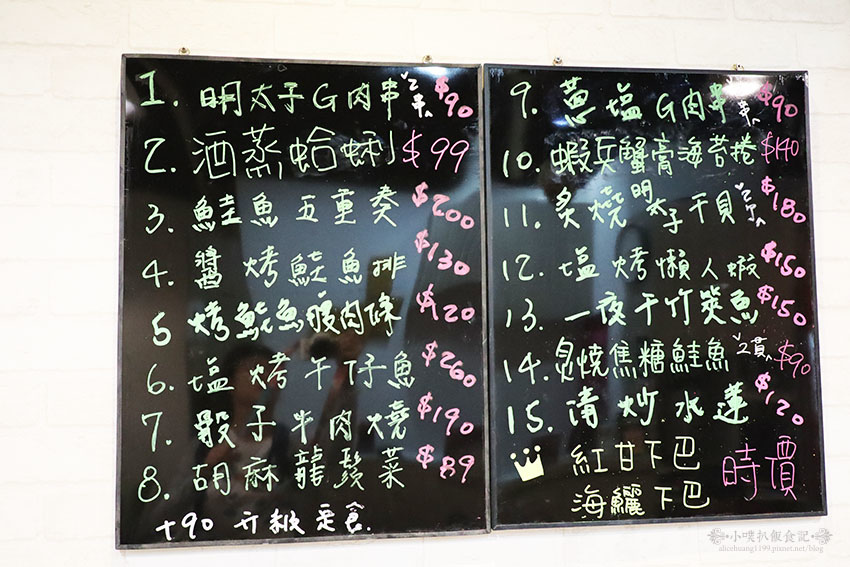 1. 明太子G肉串 2串 $90
2. 酒蒸蛤蜊 $99
3. 鮭魚五重奏 $200
4. 醬烤鮭魚排 $130
5 烤鮭魚腹肉條 $120
6. 塩烤午仔魚 $260
7. 骰子牛肉燒 $190
8. 胡麻龍鬚菜 $89
+90 升級定食.
9. 蔥塩G肉串 2串 $90
10. 蝦兵蟹膏海苔捲 $140
11. 炙燒明太子干貝 2串 $180
12. 塩烤懶人蝦 $150
13. 一夜干竹筴魚 $150
14. 炙燒焦糖鮭魚 2貫 $90
15. 清炒水蓮 $120
紅甘下巴 時價
海鱺下巴
小噗扒飯食記
alicehuang1199.pixnet.net/blog